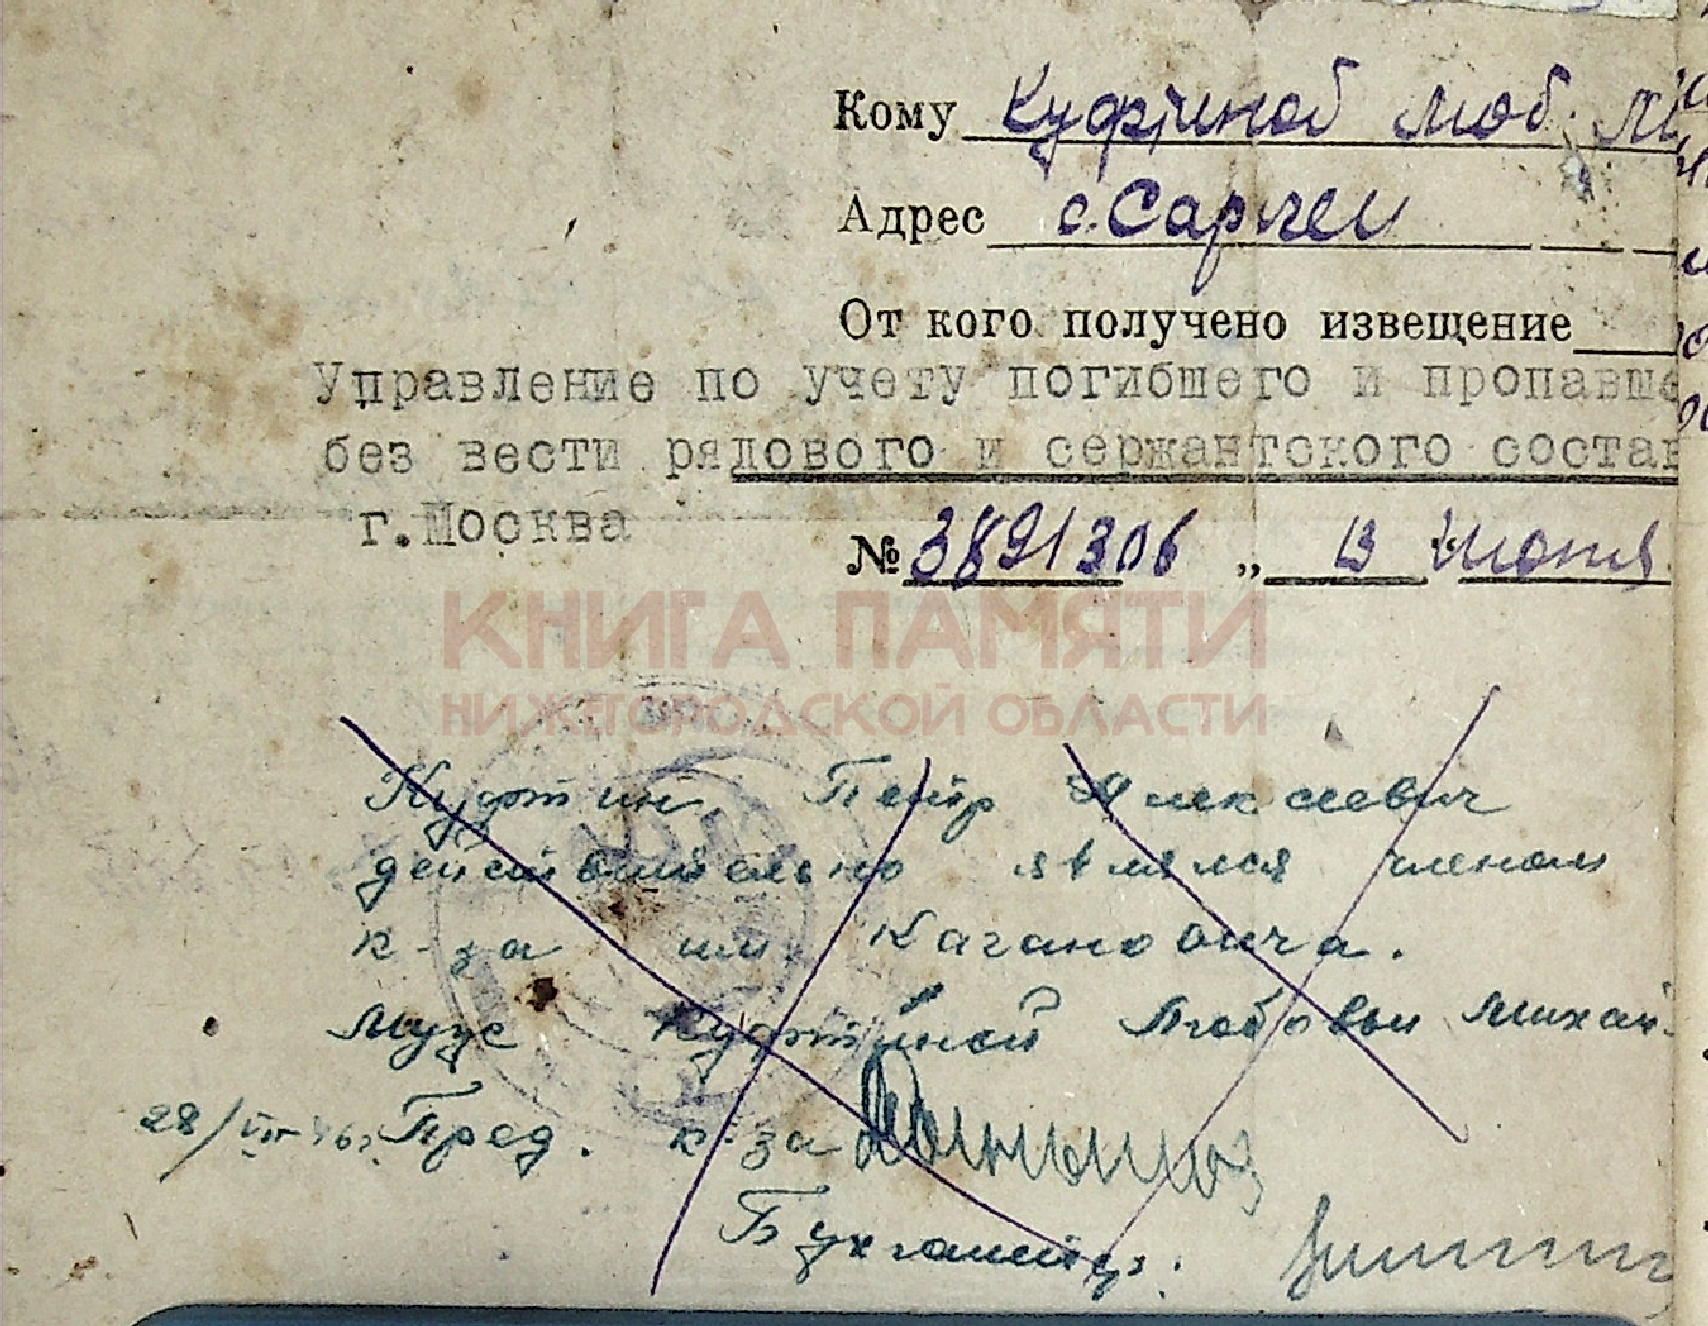 Кому Куфтиной Люб. М
Адрес с. Сарлеи
От кого получено извещение
Управление по учету погибшего и пропавше
без вести рядового и сержантского состав
г. Москва
№ 3891306 „ 13 июня
КНИГА ПАМЯТИ
НИЖЕГОРОДСКОЙ ОБЛАСТИ
Куфтин Петр Алексеевич
действительно являлся членом
к-за им. Кагановича.
Муж Куфтиной Любовьи Михай-
28/VII 46г. Пред. к-за
Бухгалтер.